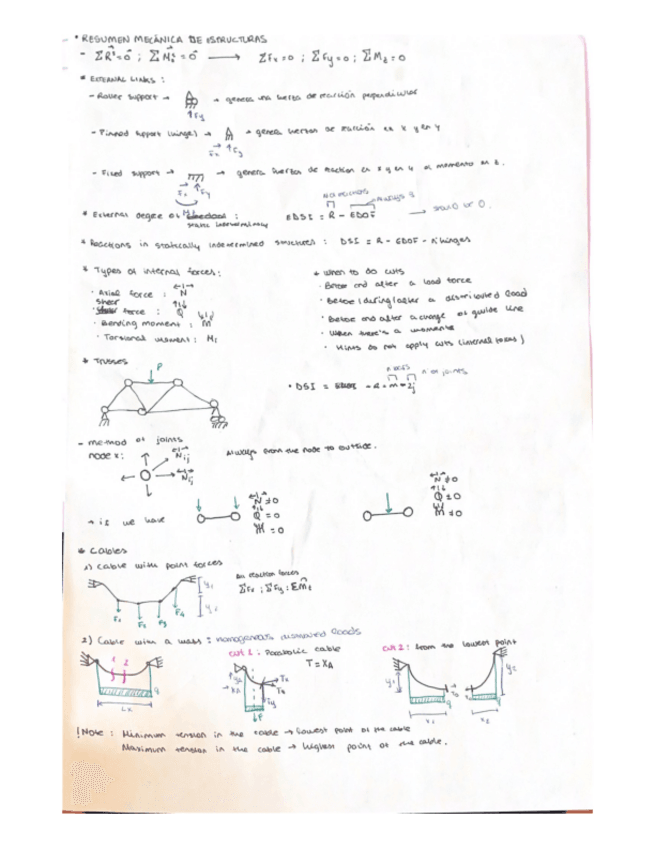 • RESUMEN MECÀNICA DE ESTRUCTURAS
- ΣR=0 ; ΣN=0 → ΣFx=0 ; ΣFy=0 ; ΣMz=0
* EXTERNAL LINKS :
- Roller support → → genera una fuerza de reacción perpendicular
↑Fy
- Pinned support (hinge) → → genera fuerzas de reacción en X y en Y
Fx ↑Fy
- Fixed support → → genera fuerzas de reaction en X y en Y al momento en z.
Fx Fy
* External degree of static indeterminacy : EDSI = R - EDOF → should be 0.
Nº reactions
Always 3
* Reactions in statically indetermined structures : DSI = R - EDOF - nº hinges
* Types of internal forces:
· Axial force : N
shear force : Q
· Bending moment : M
· Torsional moment : Mt
* When to do cuts
· Before and after a load force
· Before/during/after a distributed load
· Before and after a change of guide line
· When there's a momente
· Hints do not apply cuts (internal forces)
* Trusses
P
• DSI = R + m - 2j
nº bars nº of joints
- method of joints
node x:
Nij
Nij
Always from the node to outside.
→ if we have
N≠0
Q=0
M=0
N≠0
Q≠0
M≠0
* Cables
1) Cable with point forces
F1 F2 F3 F4
y1
y2
reaction forces
ΣFx ; ΣFy ; ΣMz
2) Cable with a mass : homogeneous distributed loads
1 2
q
Lx
cut 1 : Parabolic cable
T = XA
P
cut 2 : from the lowest point
y1
q
x1
To
x2
y2
! Note : Minimum tension in the cable → lowest point of the cable
Maximum tension in the cable → highest point of the cable.